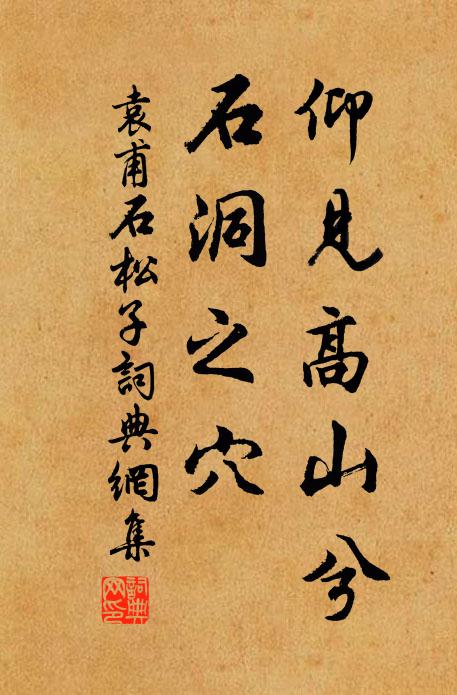 仰見高山兮
石洞之穴
袁甫石松子詞典網集
詞典网印